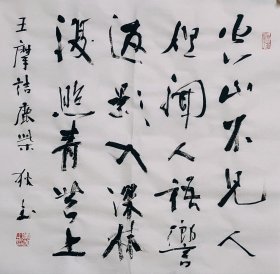 空山不見人
但聞人語響
返影入深林
復照青苔上
王摩詰鹿柴